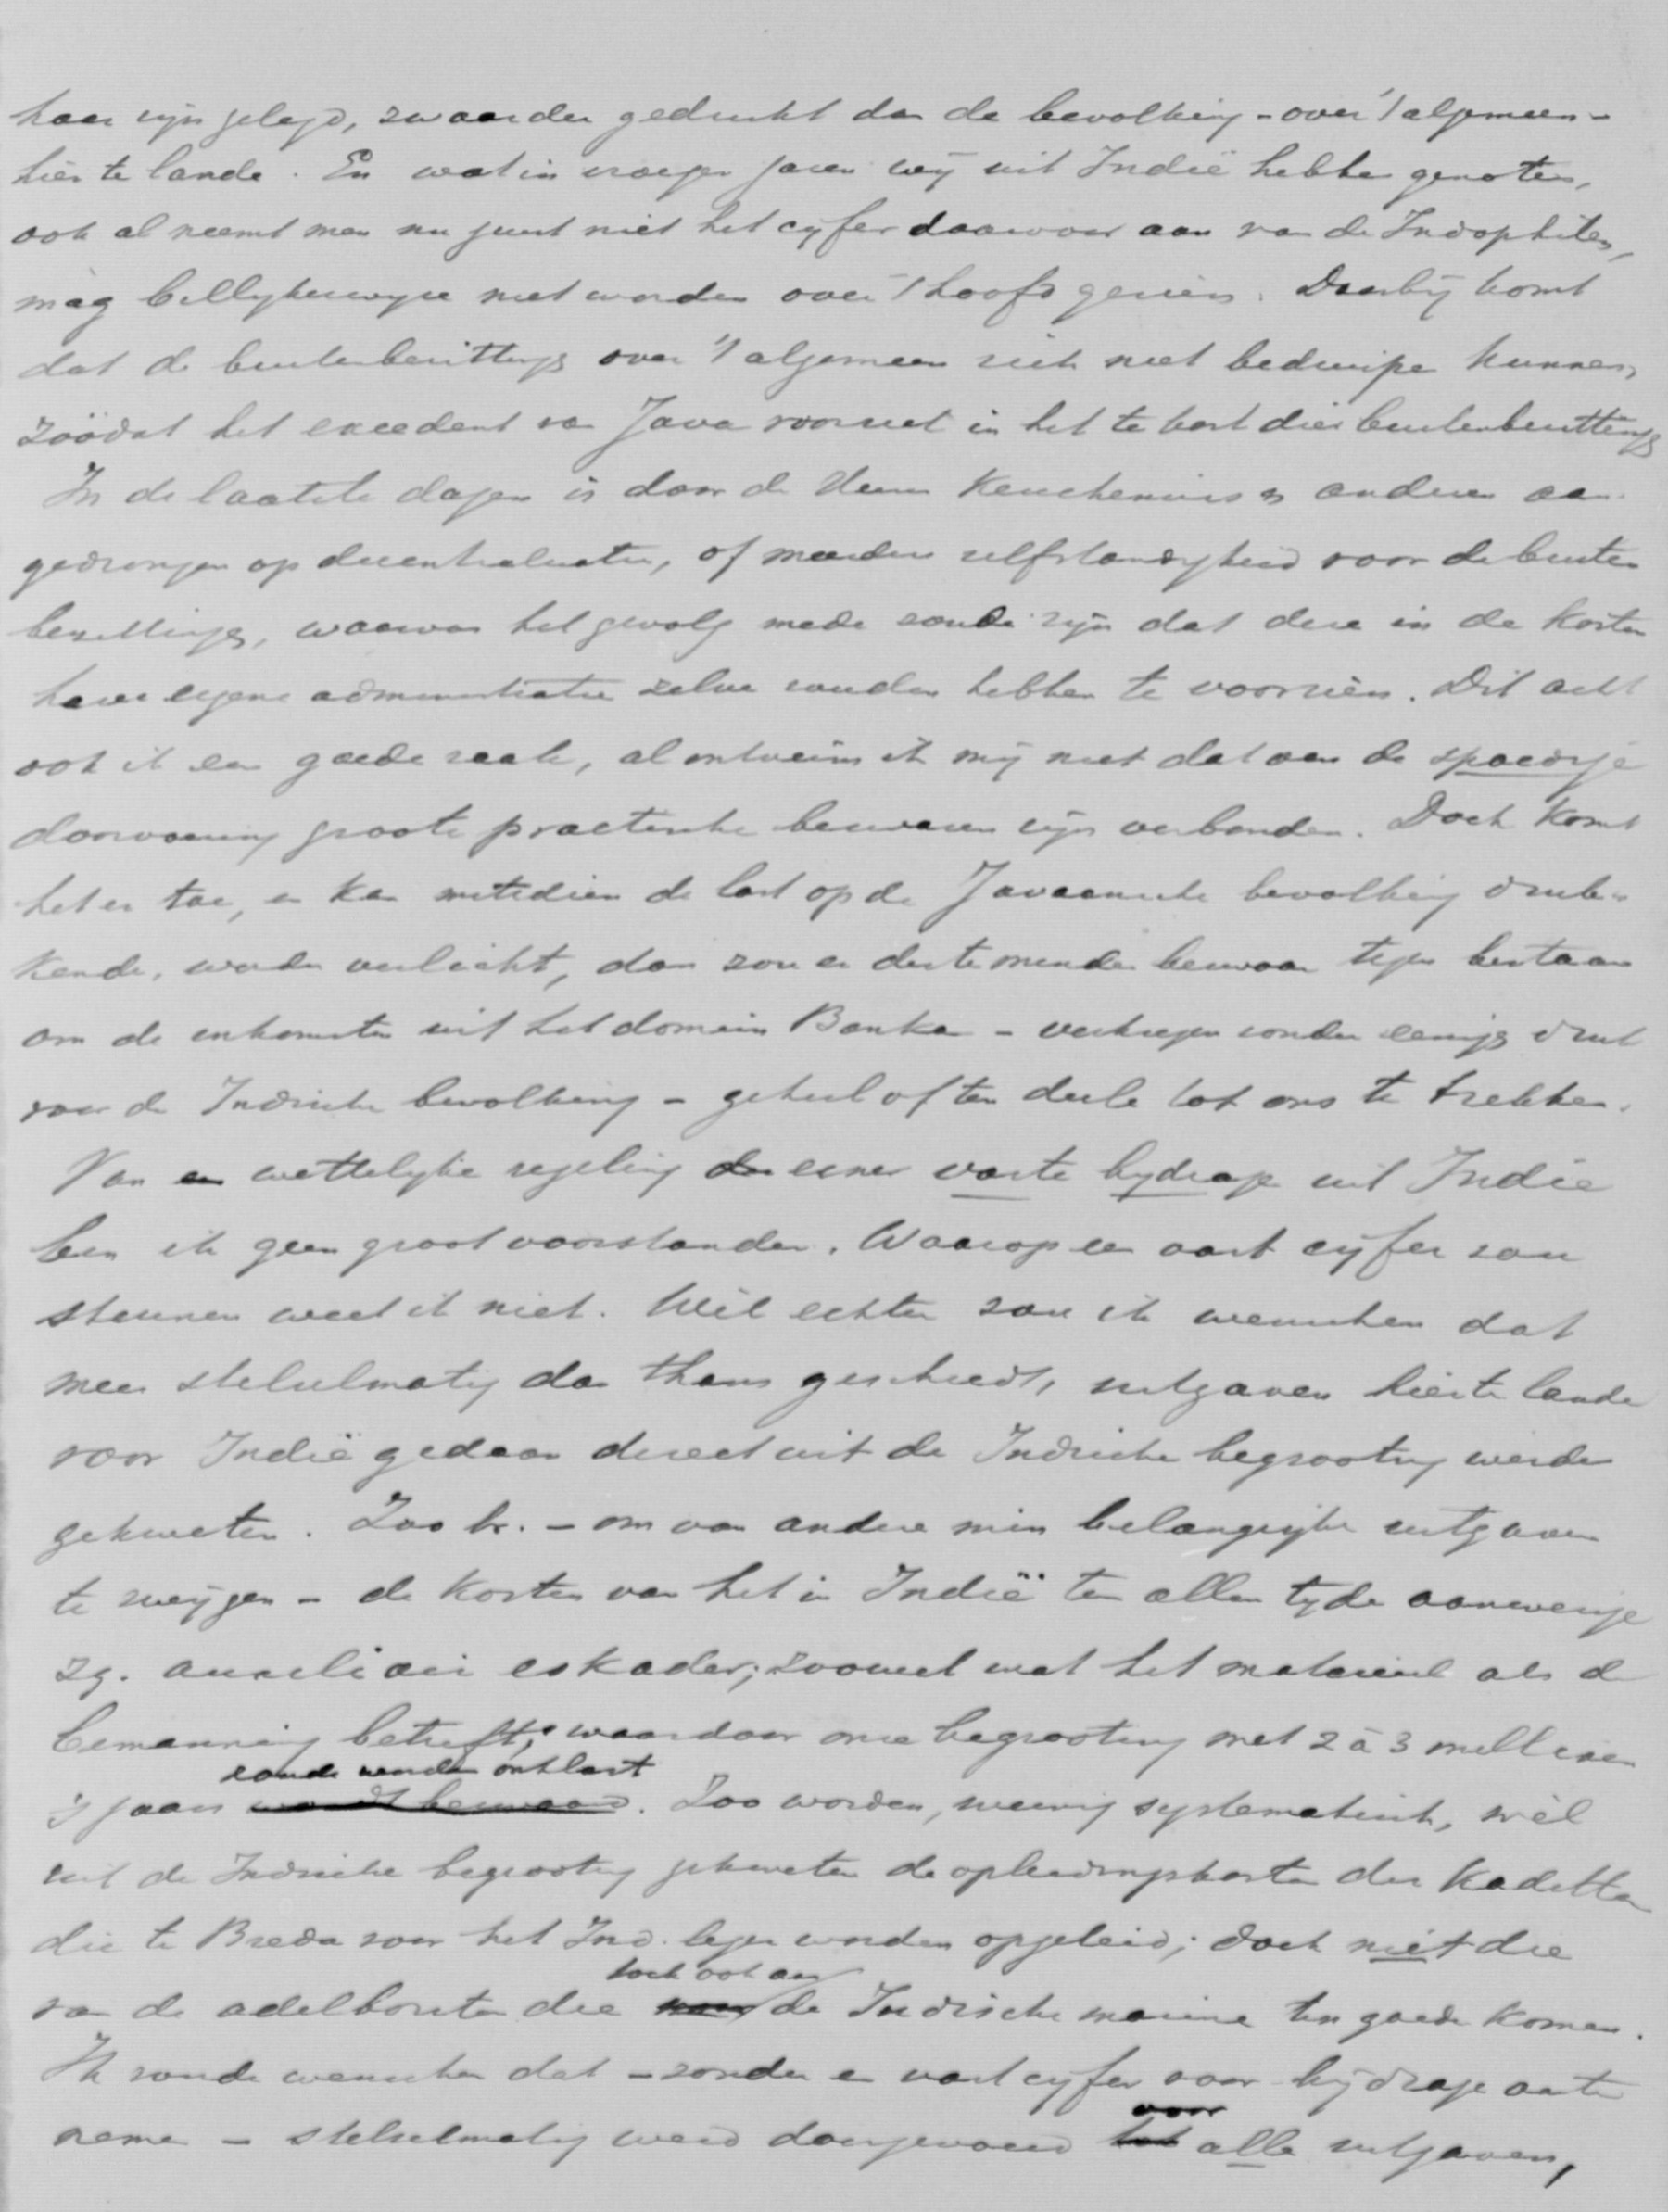 haar zijn gelegd, zwaarder gedrukt dan de bevolking - over 't algemeen -
hier te lande. En wat in vroeger jaren wij uit Indië hebben genoten,
ook al neemt men nu juist niet het cijfer daarvoor aan van de Indophilen,
màg billijkerwijze niet worden over 't hoofd gezien. Daarbij komt
dat de buitenbezittings over 't algemeen zich niet bedruipen kunnen,
zóódat het excedent van Java voorziet in het te kort dier buitenbezittings
In de laatste dagen is door de Heeren Keuchenius en anderen aan-
gedrongen op decentralisatie, of meerdere zelfstandigheid voor de buiten
bezittings, waarvan het gevolg mede zoude zijn dat deze in de kosten
harer eigene administratie zelve zouden hebben te voorzien. Dit acht
ook ik een goede zaak, al ontveins ik mij niet dat aan de spoedige
doorvoering groote practische bezwaren zijn verbonden. Doch komt
het er toe, en kan mitsdien de last op de Javaansche bevolking druk-
kende, worden verlicht, dan zou er des te minder bezwaar tegen bestaan
om de inkomsten uit het domein Banka - verkregen zonder eenigs druk
voor de Indische bevolking - geheel of ten deele tot ons te trekken.
Van een wettelijke regeling eener vaste bijdrage uit Indië
ben ik geen groot voorstander. Waarop een vast cijfer zou
steunen weet ik niet. Wèl echter zou ik wenschen dat
meer stelselmatig dan thans geschiedt, uitgaven hier te lande
voor Indië gedaan direct uit de Indische begrooting werden
gekweten. Zoo bv. - om van andere min belangrijke uitgaven
te zwijgen - de kosten van het in Indië ten allen tijde aanwezige
zg. auxiliair eskader; zoowel wat het materieel als de
bemanning betreft, waardoor onze begrooting met 2 à 3 millioen
zoude worden ontlast
's jaars wordt bezwaard. Zoo worden, weinig systematisch, wèl
uit de Indische begrooting gekweten de opleidingskosten der kadetten
die te Breda voor het Ind. leger worden opgeleid; doch niet die
toch ook aan
van de adelborsten die de Indische marine ten goede komen.
Ik zoude wenschen dat - zonder een vast cijfer voor bijdrage aan te
voor
nemen - stelselmatig werd doorgevoerd tot alle uitgaven,